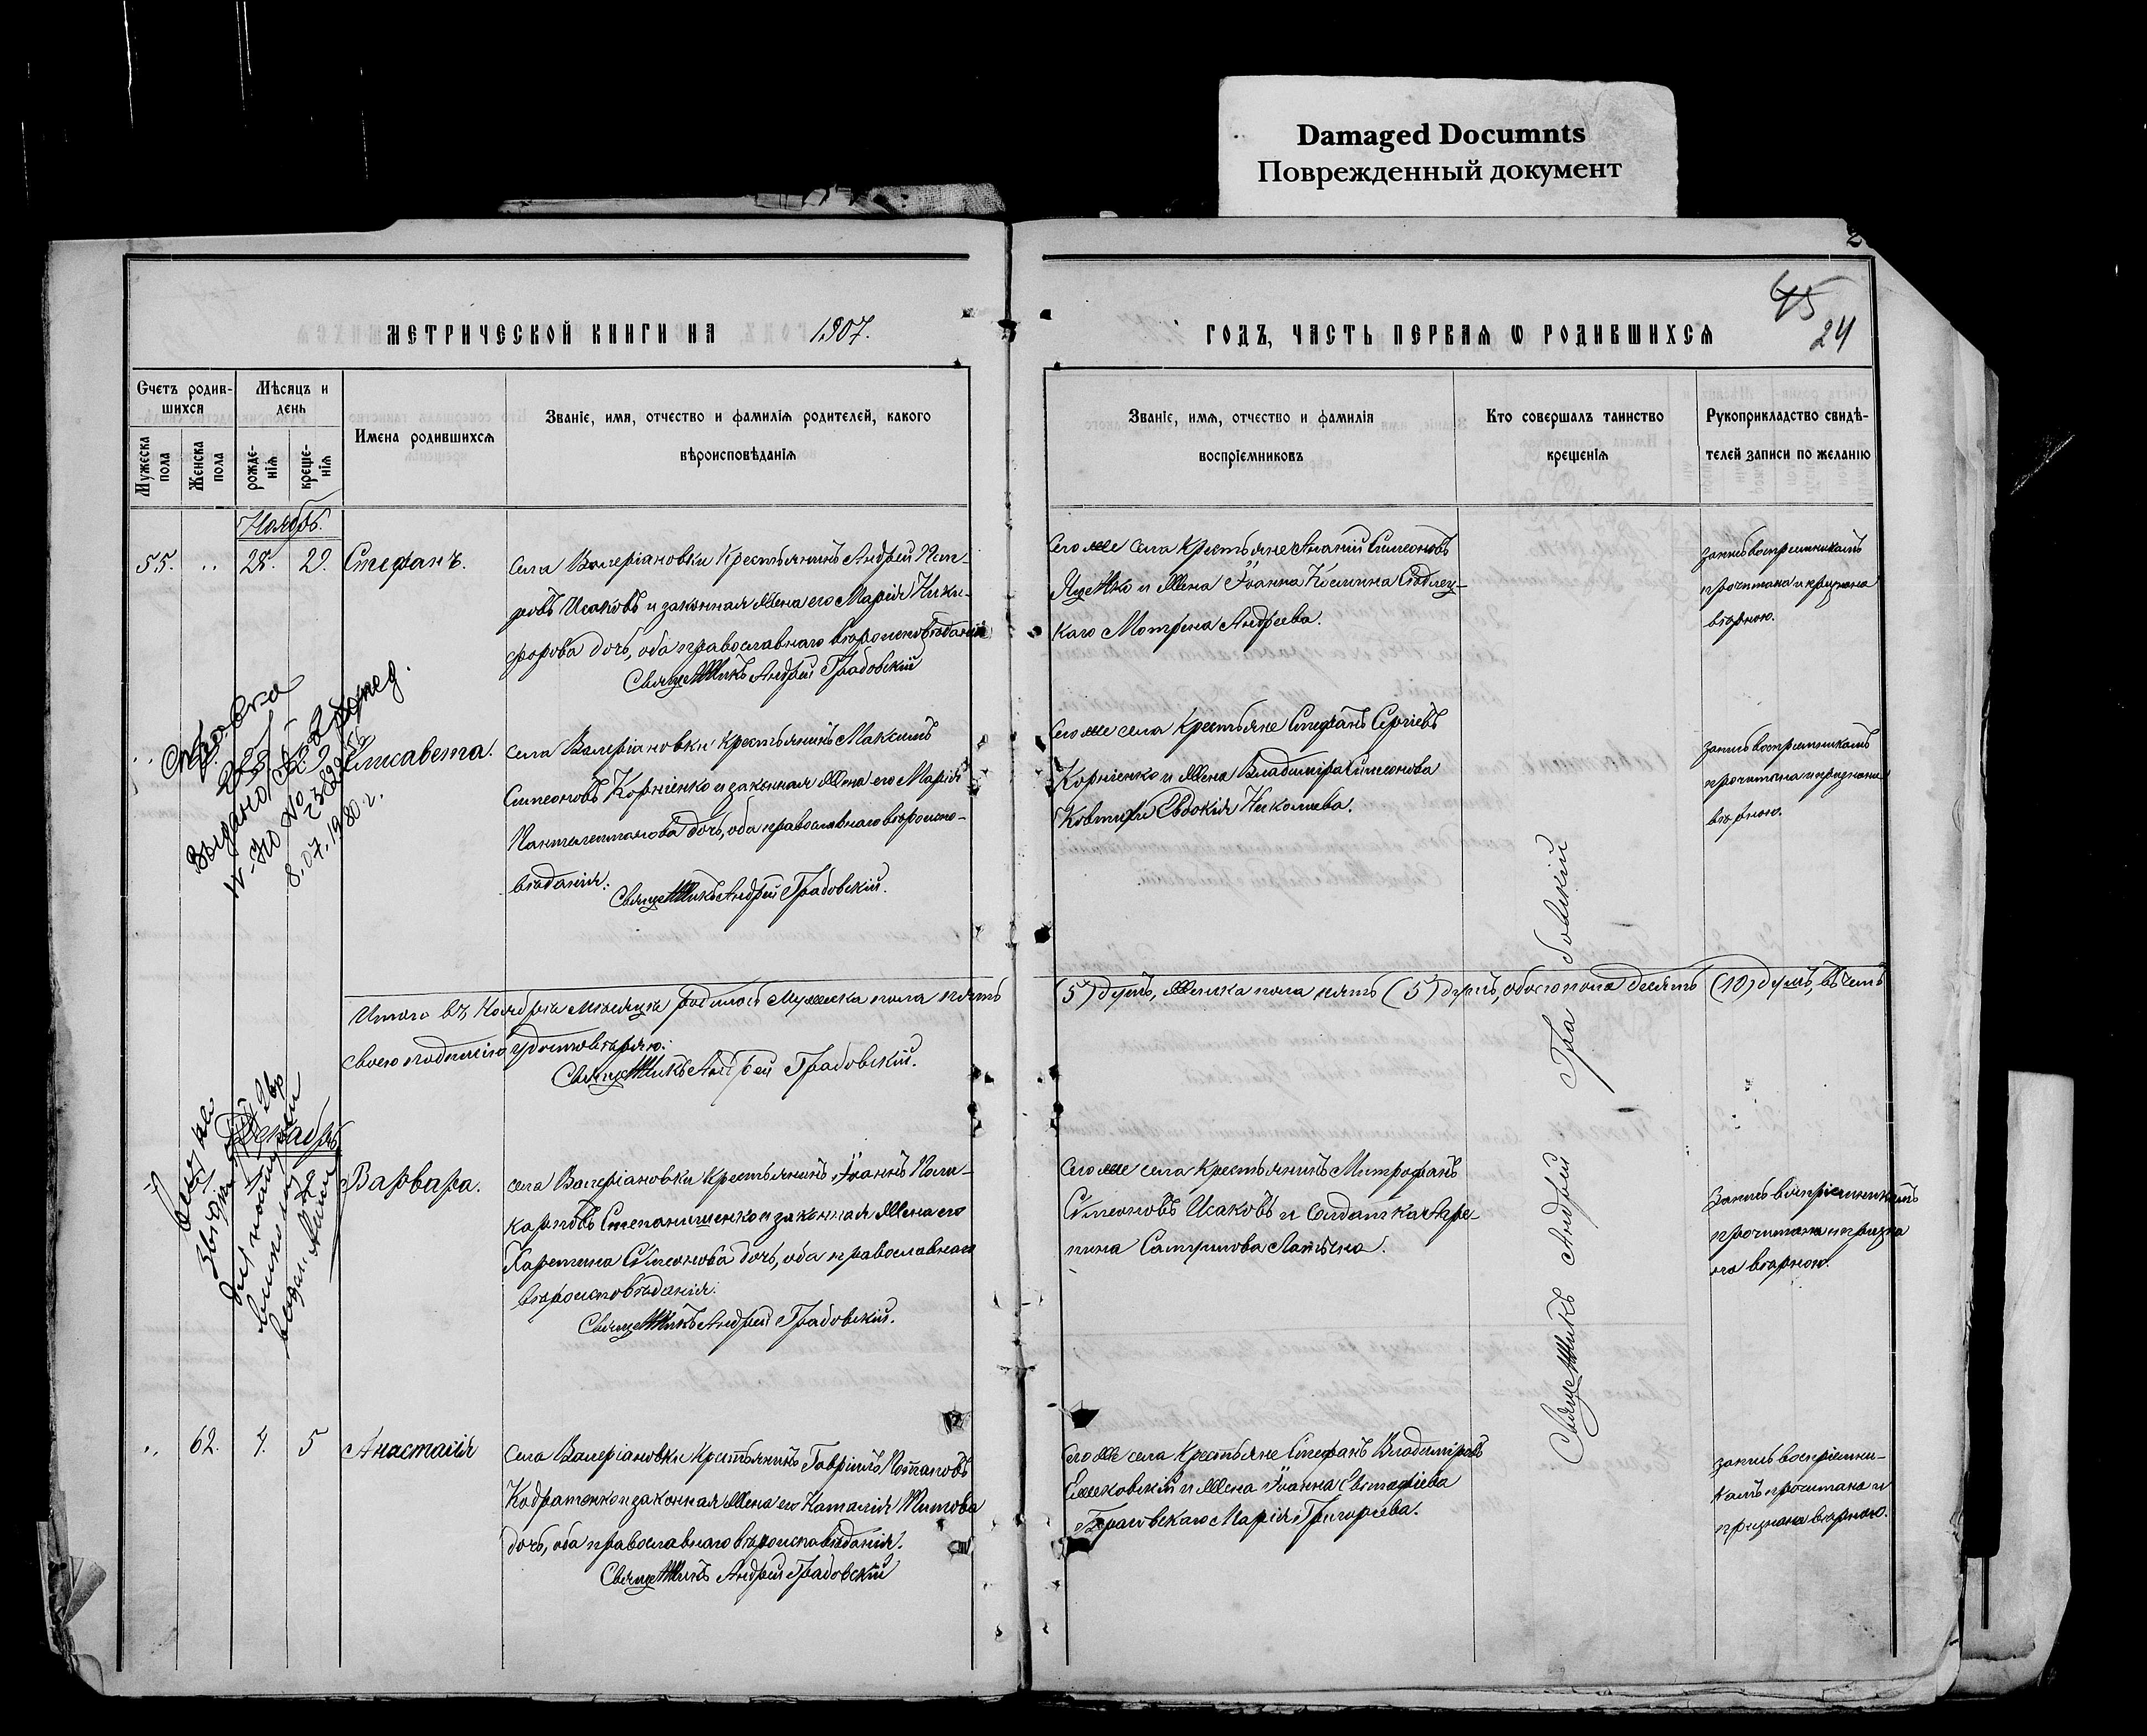 Damaged Documnts
Поврежденный документ
2
45
24
МЕТРИЧЕСКОЙ КНИГИ НА 1907.
ГОДЪ, ЧАСТЬ ПЕРВАЯ Ѡ РОДИВШИХСЯ
Счетъ родив-
шихся
Мѣсяцъ и
день
Мужеска пола
Женска пола
рожде-
нія
креще-
нія
Имена родившихся
Званіе, имя, отчество и фамилія родителей, какого
вѣроисповѣданія
Званіе, имя, отчество и фамилія
воспріемниковъ
Кто совершалъ таинство
крещенія
Рукоприкладство свидѣ-
телей записи по желанію
Ноябрь.
55. 28. 29. Стефанъ.
села Валеріановки крестьянинъ Андрей Пет-
ровъ Исаковъ и законная жена его Марія Ники-
форова дочь, оба православнаго вѣроисповѣданія
Священникъ Андрей Градовскій
Того же села крестьяне Ананій Симеоновъ
Яценко и жена Іоанна Космина
каго Мотрона Андреева.
запись воспріемникамъ
прочитана и признана
вѣрною.
Елисавета.
села Валеріановки крестьянинъ Максимъ
Симеоновъ Корніенко и законная жена его Марія
Пантелеимонова дочь, оба православнаго вѣроиспо-
вѣданія.
Священникъ Андрей Градовскій.
Того же села крестьяне Стефанъ Сергіевъ
Корніенко и жена Владиміра Симеонова
Евдокія Николаева.
запись воспріемникамъ
прочитана и признана
вѣрною.
Справка
выдано
8.07.1980 г.
Итого въ Ноябрѣ мѣсяцѣ родилось мужеска пола пять
(5) душъ, женска пола пять (5) душъ, обоего пола десять (10) душъ, въ чемъ
своею подписью удостовѣряю.
Священникъ Андрей Градовскій.
Декабрь
Варвара.
села Валеріановки крестьянинъ Іоаннъ Поли-
карповъ Степанищенко и законная жена его
Харитина Симеонова дочь, оба православнаго
вѣроисповѣданія.
Священникъ Андрей Градовскій.
Того же села крестьянинъ Митрофанъ
Симеоновъ Исаковъ и солдатка Агри-
пина
Запись воспріемникамъ
прочитана и призна
на вѣрною.
Священникъ Андрей Градовскій
62. 4. 5 Анастасія
села Валеріановки крестьянинъ Гавріилъ Потаповъ
Кодратенко и законная жена его Наталія Титова
дочь, оба православнаго вѣроисповѣданія.
Священникъ Андрей Градовскій
Того же села крестьяне Стефанъ Владиміровъ
и жена Іоанна Евстафіева
Марія Григорьева.
запись воспріемни-
камъ прочитана и
признана вѣрною.